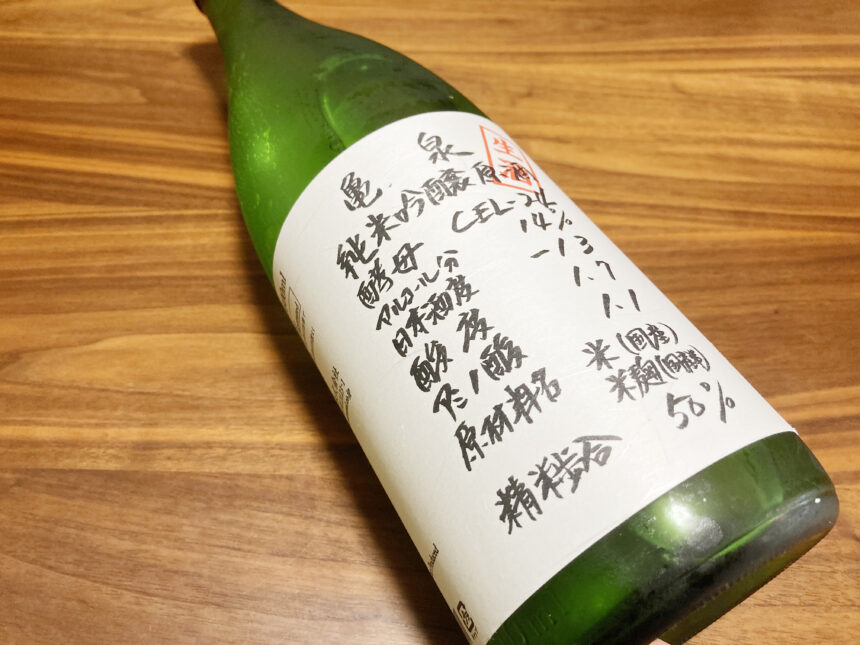 亀泉
生酒
純米吟醸原酒
酵母 CEL-24
アルコール分 14%
日本酒度 -13
酸度 1.7
アミノ酸 1.1
原材料名 米(国産)
米麹(国産米)
精米歩合 50%